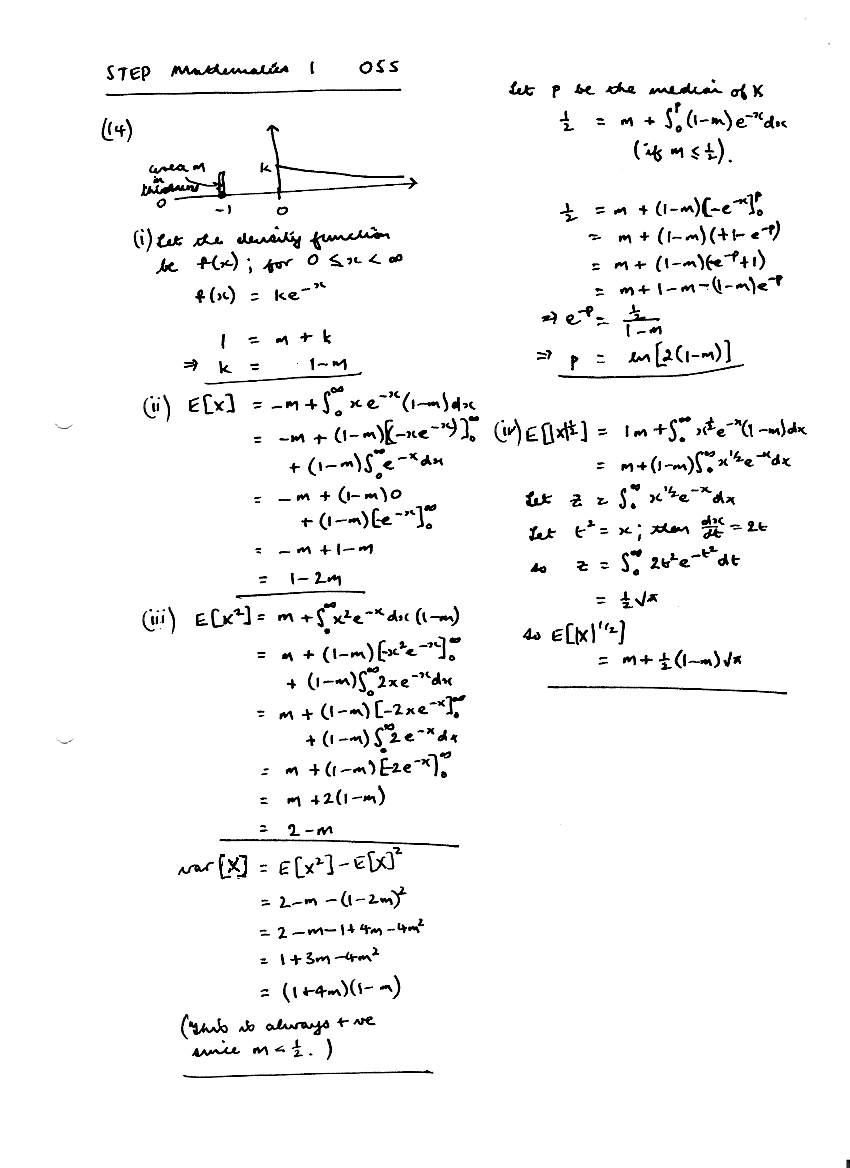 STEP Mathematics 1 055
(14)
area m
in
thickness
0
k
-1 0
(i) Let the density function
be f(x); for 0 ≤ x < ∞
f(x) = ke^{-x}
1 = m + k
⇒ k = 1-m
(ii) E[X] = -m + ∫_0^∞ x e^{-x}(1-m)dx
= -m + (1-m)[-xe^{-x}]_0^∞
+ (1-m)∫_0^∞ e^{-x}dx
= -m + (1-m)0
+ (1-m)[-e^{-x}]_0^∞
= -m + 1-m
= 1-2m
(iii) E[X²] = m + ∫_0^∞ x²e^{-x}dx (1-m)
= m + (1-m)[-x²e^{-x}]_0^∞
+ (1-m)∫_0^∞ 2xe^{-x}dx
= m + (1-m)[-2xe^{-x}]_0^∞
+ (1-m)∫_0^∞ 2e^{-x}dx
= m + (1-m)[-2e^{-x}]_0^∞
= m + 2(1-m)
= 2-m
var[X] = E[X²] - E[X]²
= 2-m - (1-2m)²
= 2-m-1+4m-4m²
= 1+3m-4m²
= (1+4m)(1-m)
(This is always +ve
since m < ½.)
Let p be the median of X
½ = m + ∫_0^p (1-m)e^{-x}dx
(if m ≤ ½).
½ = m + (1-m)[-e^{-x}]_0^p
= m + (1-m)(+1-e^{-p})
= m + (1-m)(-e^{-p}+1)
= m+1-m-(1-m)e^{-p}
⇒ e^{-p} = ½/(1-m)
⇒ p = ln[2(1-m)]
(iv) E[|X|^{½}] = 1m + ∫_0^∞ x^{½}e^{-x}(1-m)dx
= m+(1-m)∫_0^∞ x^{1/2}e^{-x}dx
Let z = ∫_0^∞ x^{1/2}e^{-x}dx
Let t² = x; then dx/dt = 2t
so z = ∫_0^∞ 2t²e^{-t²}dt
= ½√π
so E[|X|^{1/2}]
= m + ½(1-m)√π